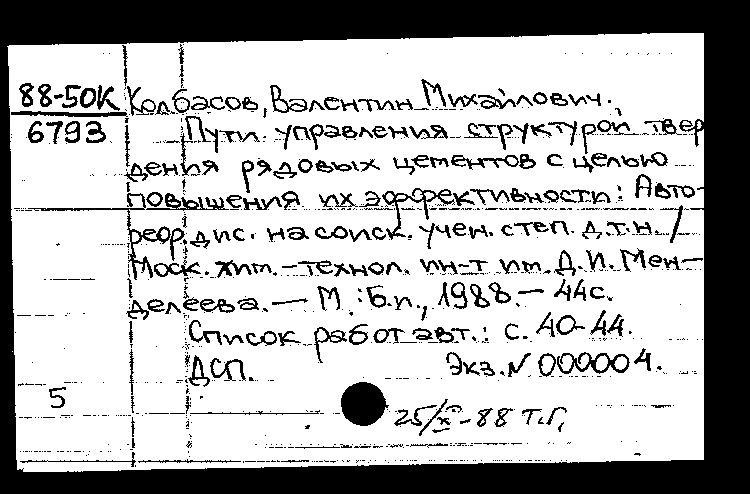 88-50К Колбасов, Валентин Михайлович.
6793 Пути управления структурой твер
дения рядовых цементов с целью
повышения их эффективности: Авто-
реф. дис. на соиск. учен. степ. д.т.н. /
Моск. хим.-технол. ин-т им. Д.И. Мен-
делеева. — М.: Б.и., 1988. — 44с.
Список работ авт.: с. 40-44.
ДСП. Экз. N 000004.
5
25/XI-88 Т.Г,